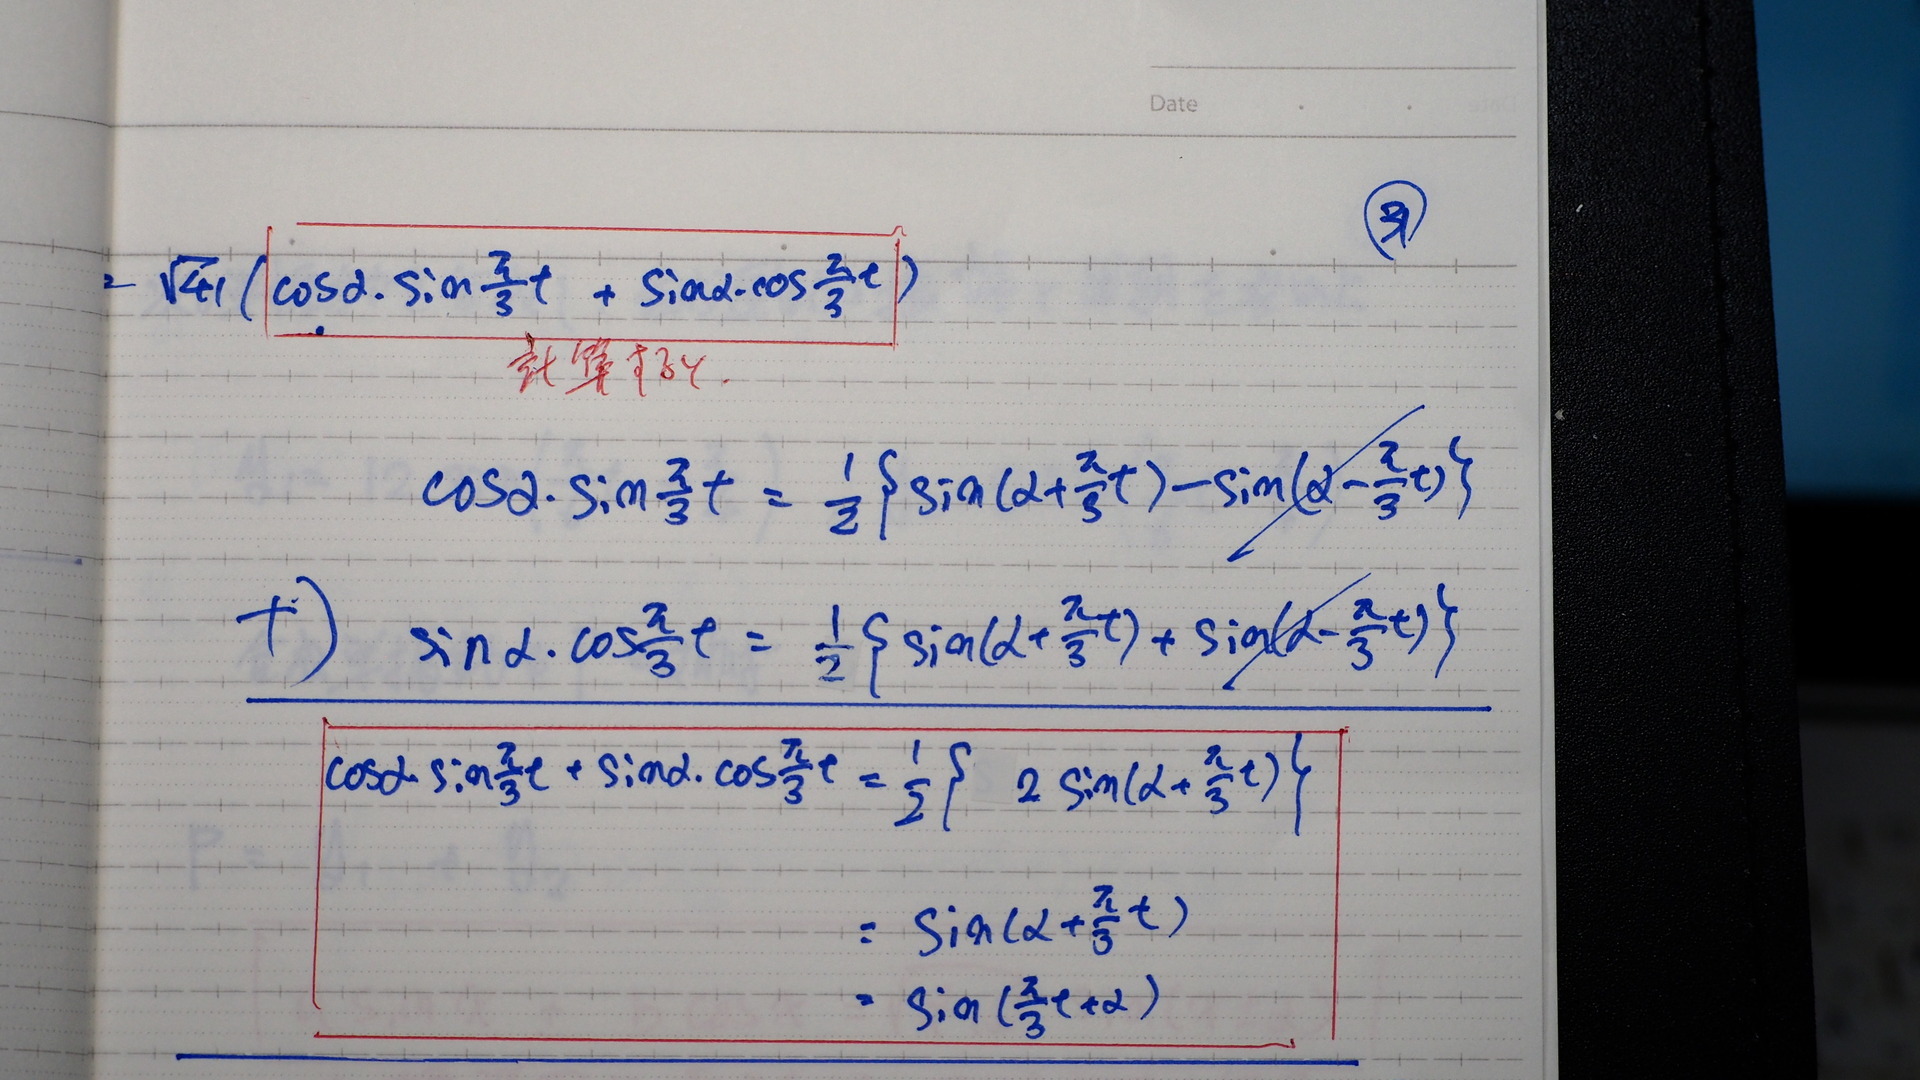 Date
= √41 (cosα・sin π/3 t + sinα・cos π/3 t)
計算すると.
cosα・sin π/3 t = 1/2 {sin(α+π/3 t) − sin(α−π/3 t)}
+) sinα・cos π/3 t = 1/2 {sin(α+π/3 t) + sin(α−π/3 t)}
cosα・sin π/3 t + sinα・cos π/3 t = 1/2 { 2 sin(α+π/3 t)}
= sin(α+π/3 t)
= sin(π/3 t+α)